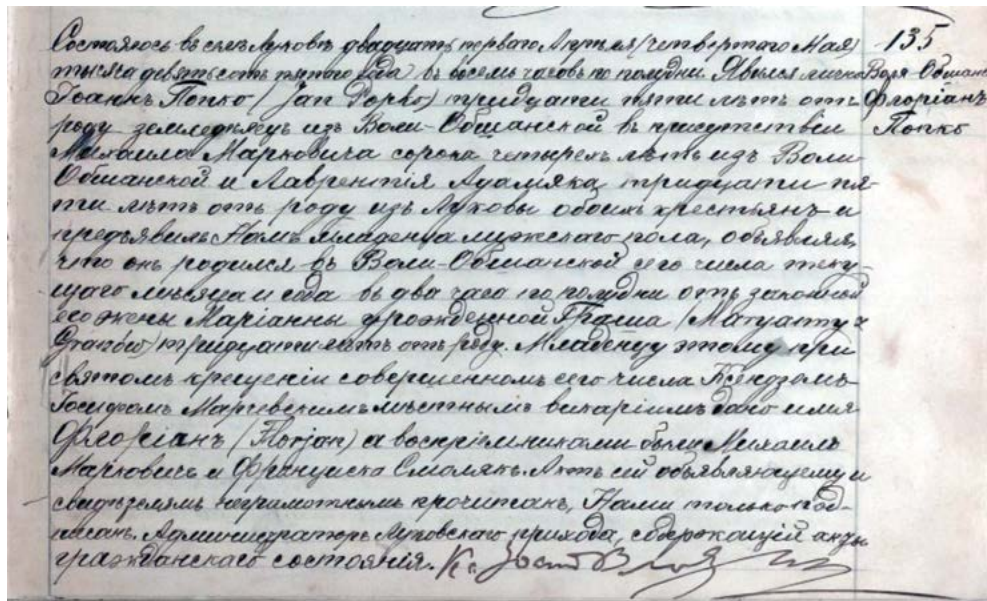 Состоялось въ селѣ Луковѣ двадцать перваго Апрѣля (четвертаго Мая)
тысяча девятьсотъ пятаго года въ восемь часовъ по полудни. Явился лично
Іоаннъ Попко (Jan Popko) тридцати пяти лѣтъ отъ
роду земледѣлецъ изъ Воли-Обшанской въ присутствіи
Михаила Марковича сорока четырехъ лѣтъ изъ Воли
Обшанской и Лаврентія Адамяка тридцати пя-
ти лѣтъ отъ роду изъ Луковы обоихъ крестьянъ и
предъявилъ Намъ младенца мужскаго пола, объявляя,
что онъ родился въ Воли-Обшанской сего числа теку-
щаго мѣсяца и года въ два часа по полудни отъ законной
его жены Маріанны урожденной Граша (Maryanny z
) тридцати лѣтъ отъ роду. Младенцу этому при
святомъ крещеніи совершенномъ сего числа Ксендзомъ
Іосифомъ мѣстнымъ викаріемъ дано имя
Флоріанъ (Florjan) а воспріемниками были Михаилъ
Марковичъ и Франциска Смолякъ. Актъ сей объявляющему и
свидѣтелямъ неграмотнымъ прочитанъ, Нами только под-
писанъ. Администраторъ Луковскаго прихода, содержащій акты
гражданскаго состоянія. Кс.
135
Воля-Обшанс
Флоріанъ
Попко